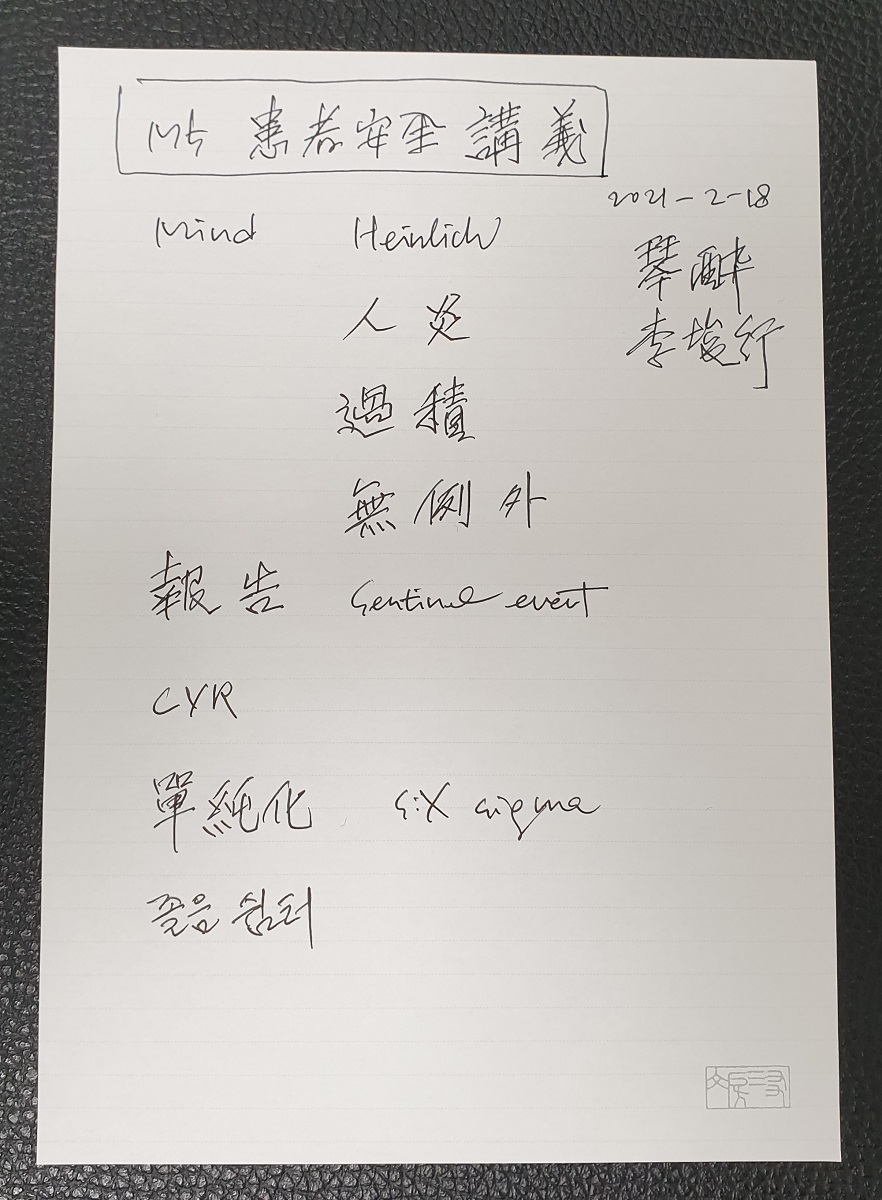 M5 患者安全 講義
2021-2-18
Mind Heinlich
琴酔
人災
李埈行
過積
無例外
報告 Sentinel event
CVR
單純化 six sigma
졸음 쉼터